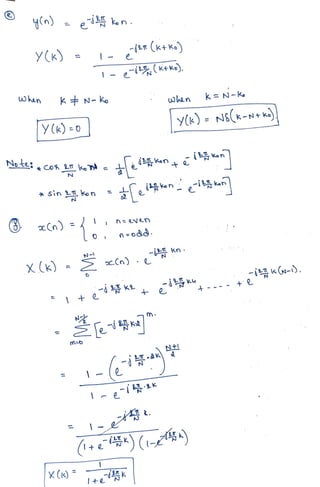 (e) y(n) = e^{-j 2π/N k₀n}.
Y(k) = 1 - e^{-j2π(k+k₀)} / 1 - e^{-j2π/N (k+k₀)}.
when k ≠ N-k₀ when k = N-k₀
Y(k)=0 Y(k) = Nδ(k-N+k₀)
Note: * cos 2π/N k₀n = 1/2 [e^{j2π/N k₀n} + e^{-j2π/N k₀n}]
* sin 2π/N k₀n = 1/2 [e^{j2π/N k₀n} - e^{-j2π/N k₀n}]
x(n) = { 1, n=even
0, n=odd.
X(k) = Σ_{0}^{N-1} x(n) · e^{-j 2π/N kn}.
= 1 + e^{-j 2π/N k2} + e^{-j 2π/N k4} + ---- + e^{-j 2π/N k(N-1)}.
= Σ_{m=0} [e^{-j 2π/N k2}]^{m}.
= 1 - (e^{-j 2π/N · 2k})^{N+1/2} / 1 - e^{-j 2π/N · 2k}
= 1 - e^{-j 2π/N k} / (1+e^{-j2π/N k}) (1-e^{-j2π/N k})
X(k) = 1 / 1+e^{-j2π/N k}